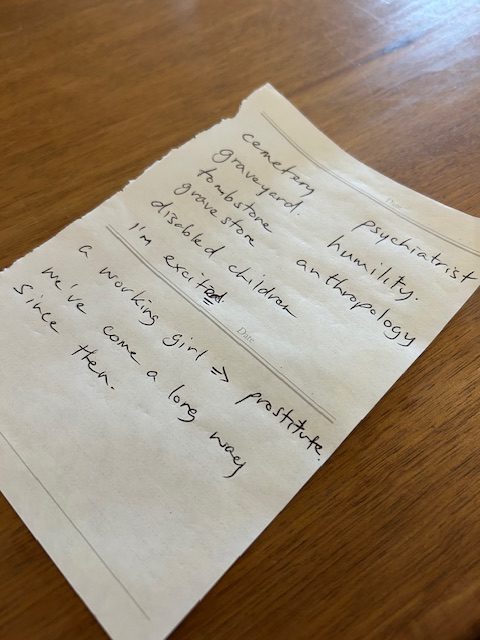 Date
cemetery
graveyard.
tombstone
gravestone
disabled children
I'm excited
psychiatrist
humility.
anthropology
Date
a working girl => prostitute.
we've come a long way
since then.